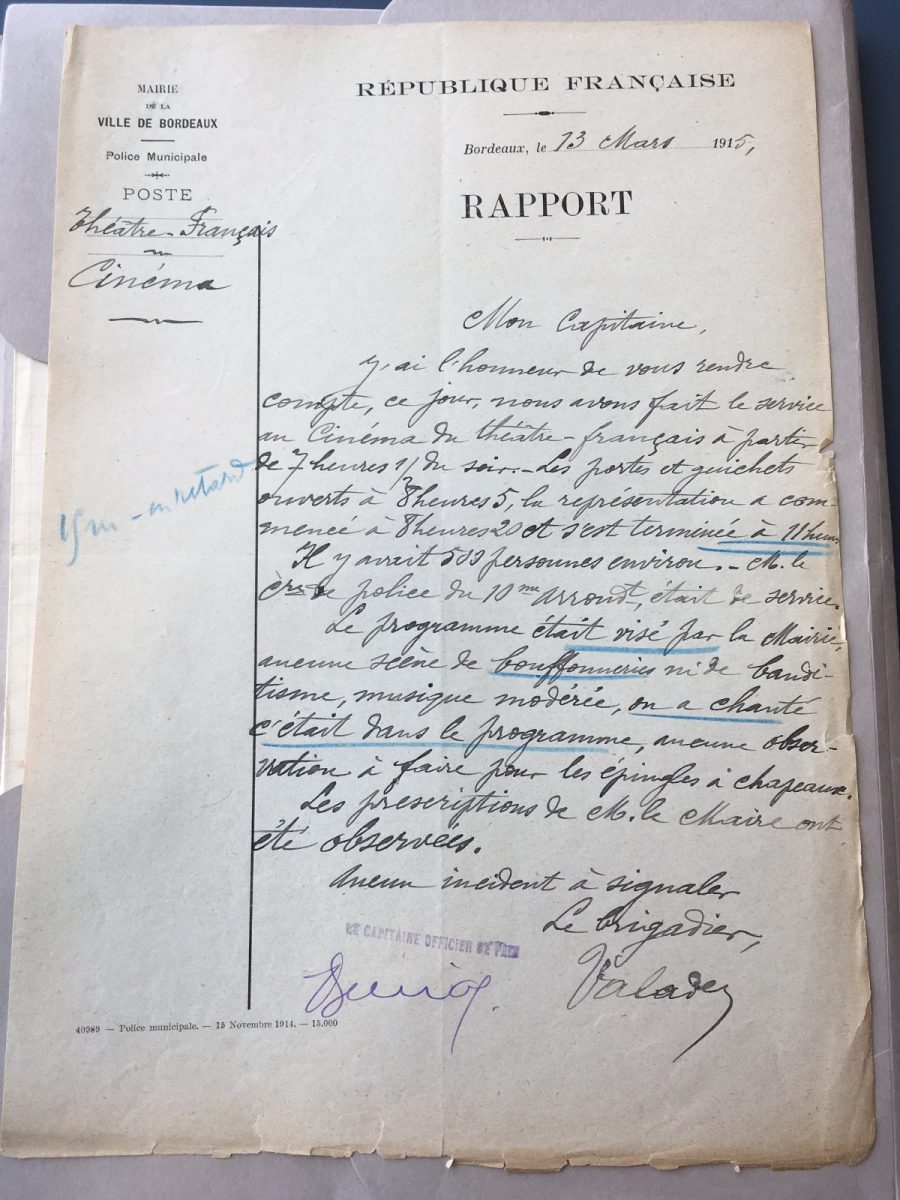 MAIRIE
DE LA
VILLE DE BORDEAUX
Police Municipale
POSTE
Théâtre-Français
Cinéma
RÉPUBLIQUE FRANÇAISE
Bordeaux, le 13 Mars 1915,
RAPPORT
Mon Capitaine,
J'ai l'honneur de vous rendre
compte, ce jour, nous avons fait le service
au Cinéma du théâtre-français à partir
de 7 heures 1/2 du soir.- Les portes et guichets
ouverts à 8 heures 5, la représentation a com-
mencé à 8 heures 20 et s'est terminée à 11 heures
15 m - en retard
Il y avait personnes environ.- M. le
Cre de police du 10me Arrondt, était de service.
Le programme était visé par la Mairie,
aucune scène de bouffonneries ni de bandi-
tisme, musique modérée, on a chanté
c'était dans le programme, aucune obser-
vation à faire pour les épingles à chapeaux.
Les prescriptions de M. le Maire ont
été observées.
Aucun incident à signaler
Le brigadier,
LE CAPITAINE OFFICIER DE PAIX
40989 — Police municipale. — 15 Novembre 1914. — 15.000